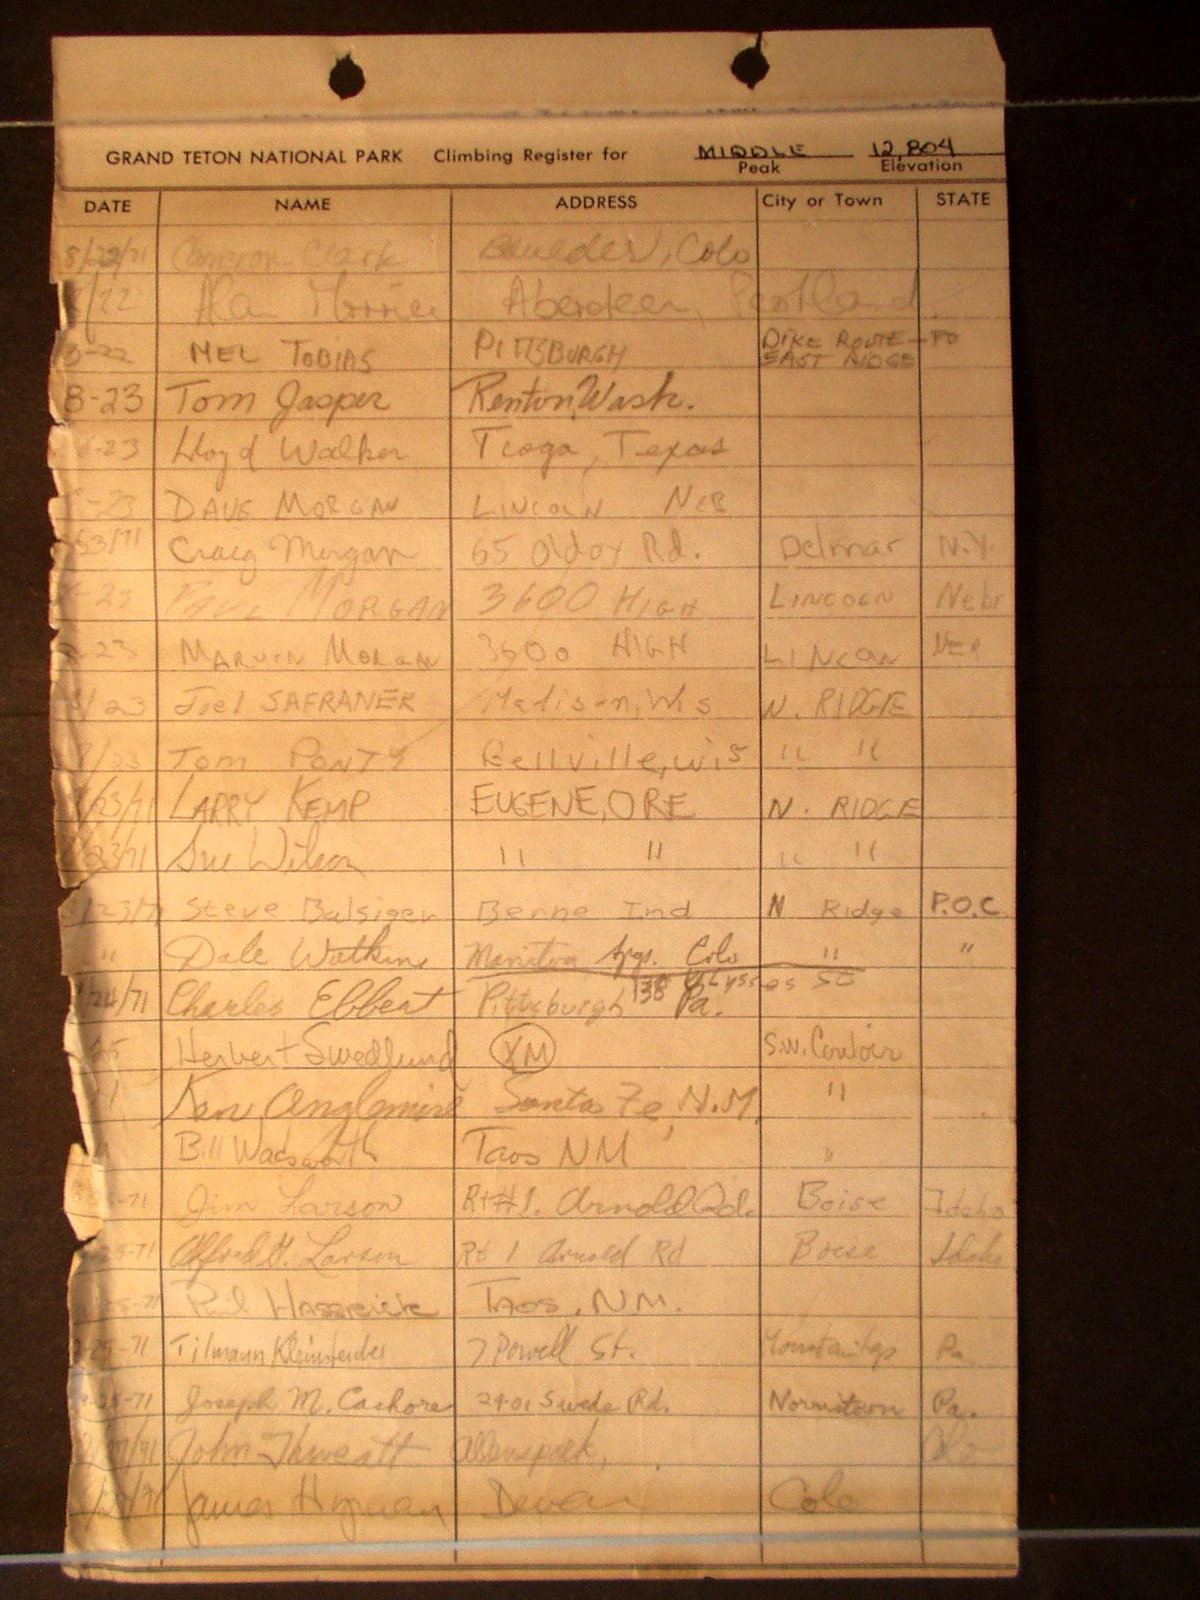 GRAND TETON NATIONAL PARK Climbing Register for MIDDLE Peak 12,804 Elevation
DATE NAME ADDRESS City or Town STATE
8/22/71 Cameron Clark Boulder, Colo
/22 Alan Aberdeen,
8-22 MEL TOBIAS PITTSBURGH DIKE ROUTE - EAST RIDGE
8-23 Tom Jasper Renton, Wash.
8-23 Lloyd Walker Tioga, Texas
-23 DAVE MORGAN LINCOLN NEB
/71 Craig Morgan 65 Oldox Rd. Delmar N.Y.
-23 MORGAN 3600 HIGH LINCOLN Nebr
-23 MARVIN MORGAN 3600 HIGH LINCON NEB
/23 Joel SAFRANEK Madison, Wis N. RIDGE
/23 TOM PONTY Bellville, wis " "
/23/71 LARRY KEMP EUGENE, ORE N. RIDGE
/23/71 Sue Wilson " " " "
/23/71 Steve Balsiger Berne Ind N Ridge P.O.C.
" Dale Watkins Manitou Spgs. Colo " "
/24/71 Charles Ebbert Pittsburgh Pa. 138 Ulysses St
25 Herbert Swedlund XM S.W. Couloir
" Ken Anglemire Santa Fe, N.M. "
" Bill Wadsworth Taos NM "
-71 Jim Larson Rt #1. Arnold Rd. Boise Idaho
-25-71 Alfred H. Larson Rt 1 Arnold Rd Boise Idaho
-71 Taos, N.M.
-25-71 Tilmann 7 Powell St. Pa.
-25-71 Joseph M. Cashore 2401 Swede Rd. Norristown Pa.
/27/71 John Thweatt Allenspark,
/71 James Hyman Colo